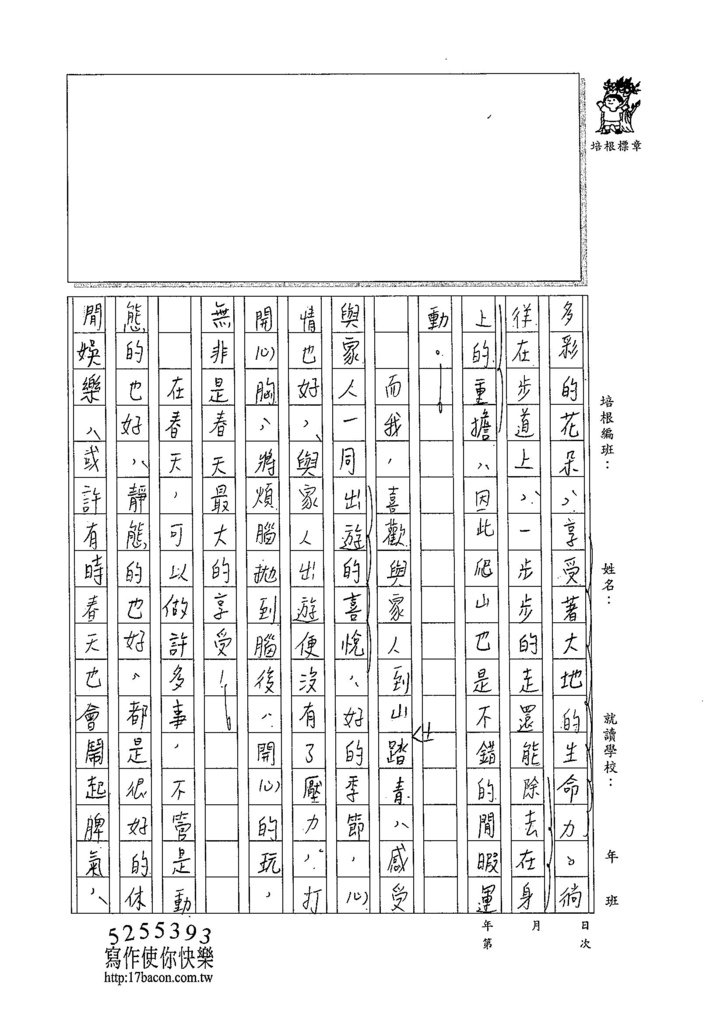 培根標章
培根編班：
姓名：
就讀學校：
年
班
年
第
月
日
次
多彩的花朵，享受著大地的生命力。徜
徉在步道上，一步步的走還能除去在身
上的重擔，因此爬山也是不錯的閒暇運
動。
而我，喜歡與家人到山上踏青，感受
與家人一同出遊的喜悅，好的季節，心
情也好，與家人出遊便沒有了壓力，打
開心胸，將煩腦拋到腦後，開心的玩，
無非是春天最大的享受！
在春天，可以做許多事，不管是動
態的也好，靜態的也好，都是很好的休
閒娛樂，或許有時春天也會鬧起脾氣，
5255393
寫作使你快樂
http:17bacon.com.tw